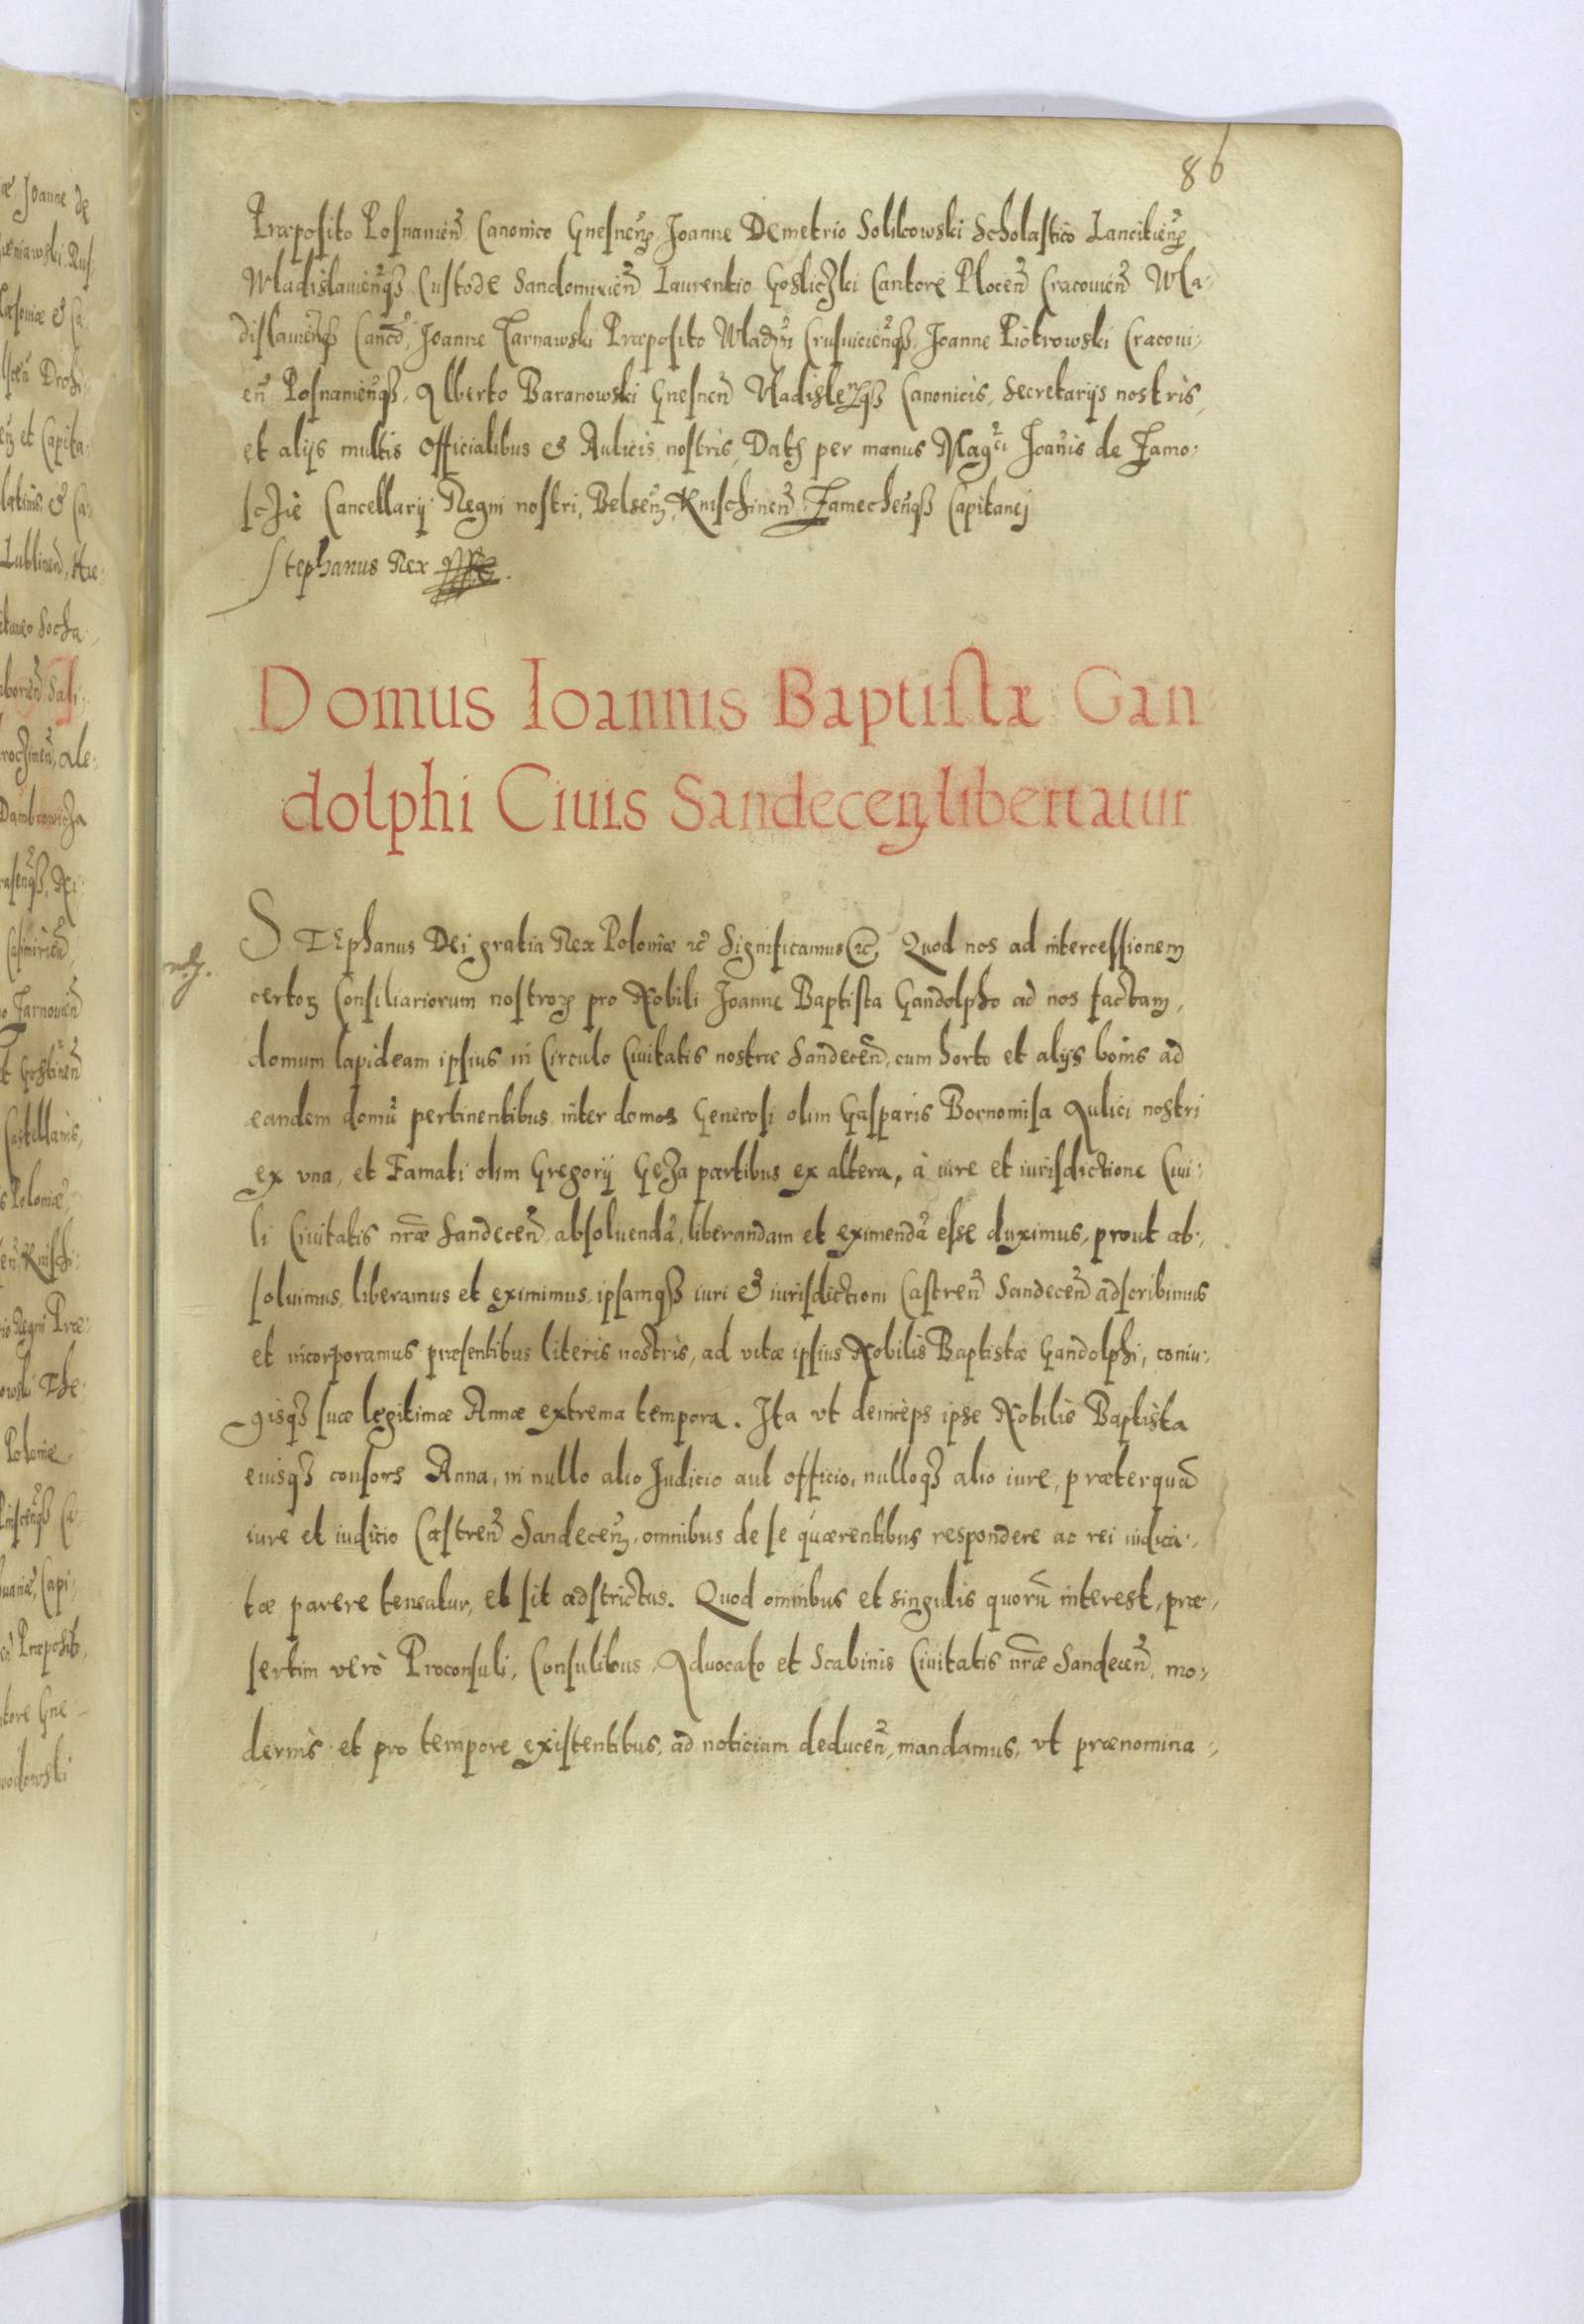 86
Præposito Posnanien̄ Canonico Gnesnen̄, Joanne Demetrio Solikowski Scholastico Lancitien̄,
Wladislauien̄qȝ Custode Sandomirien̄ Laurentio Goslicżki Cantore Plocen̄ Cracouien̄ Wla-
dislauien̄qȝ Can̄co, Joanne Tarnawski Præposito Wlad Crusuicien̄qȝ, Joanne Piotrowski Cracoui-
en̄ Posnanien̄qȝ, Alberto Baranowski Gnesnen̄ Vladislen̄qȝ Canonicis, Secretarijs nostris,
et alijs multis Officialibus & Aulicis nostris, Datt per manus Magci Joānis de Zamo-
sczie Cancellarij Regni nostri, Belsen̄, Knischinen̄ Zamechen̄qȝ Capitanej
Stephanus Rex
Domus Ioannis Baptistæ Gan
dolphi Ciuis Sandecen̄ libertatur
STEphanus Dei gratia Rex Poloniæ &c̄ Significamus &c̄, Quod nos ad intercessionem
certoȝ Consiliariorum nostroȝ pro Nobili Joanne Baptista Gandolpho ad nos factam,
domum lapideam ipsius in Circulo Ciuitatis nostræ Sandecen̄, cum horto et alijs bonis ad
eandem domū pertinentibus, inter domos Generosi olim Gasparis Bornomisa Aulici nostri
ex vna, et Famati olim Gregorij Geza partibus ex altera, à iure et iurisdictione Ciui-
li Ciuitatis nr̄æ Sandecen̄, absoluendā, liberandam et eximendā esse duximus, prout ab-
soluimus, liberamus et eximimus, ipsamqȝ iuri & iurisdictioni Castren̄ Sandecen̄ adscribimus
et incorporamus præsentibus literis nostris, ad vitæ ipsius Nobilis Baptistæ Gandolphi, coniu-
gisqȝ suæ legitimæ Annæ extrema tempora. Ita vt deinceps ipse Nobilis Baptista
eiusqȝ consors Anna, in nullo alio Judicio aut officio, nulloqȝ alio iure, præterquā
iure et iudicio Castren̄ Sandecen̄, omnibus de se quærentibus respondere ac rei iudica-
tæ parere teneatur, et sit adstrictus. Quod omnibus et singulis quorū interest, præ-
sertim verò Proconsuli, Consulibus, Aduocato et Scabinis Ciuitatis nr̄æ Sandecen̄, mo-
dernis et pro tempore existentibus, ad noticiam deducen̄, mandamus, vt prænomina-